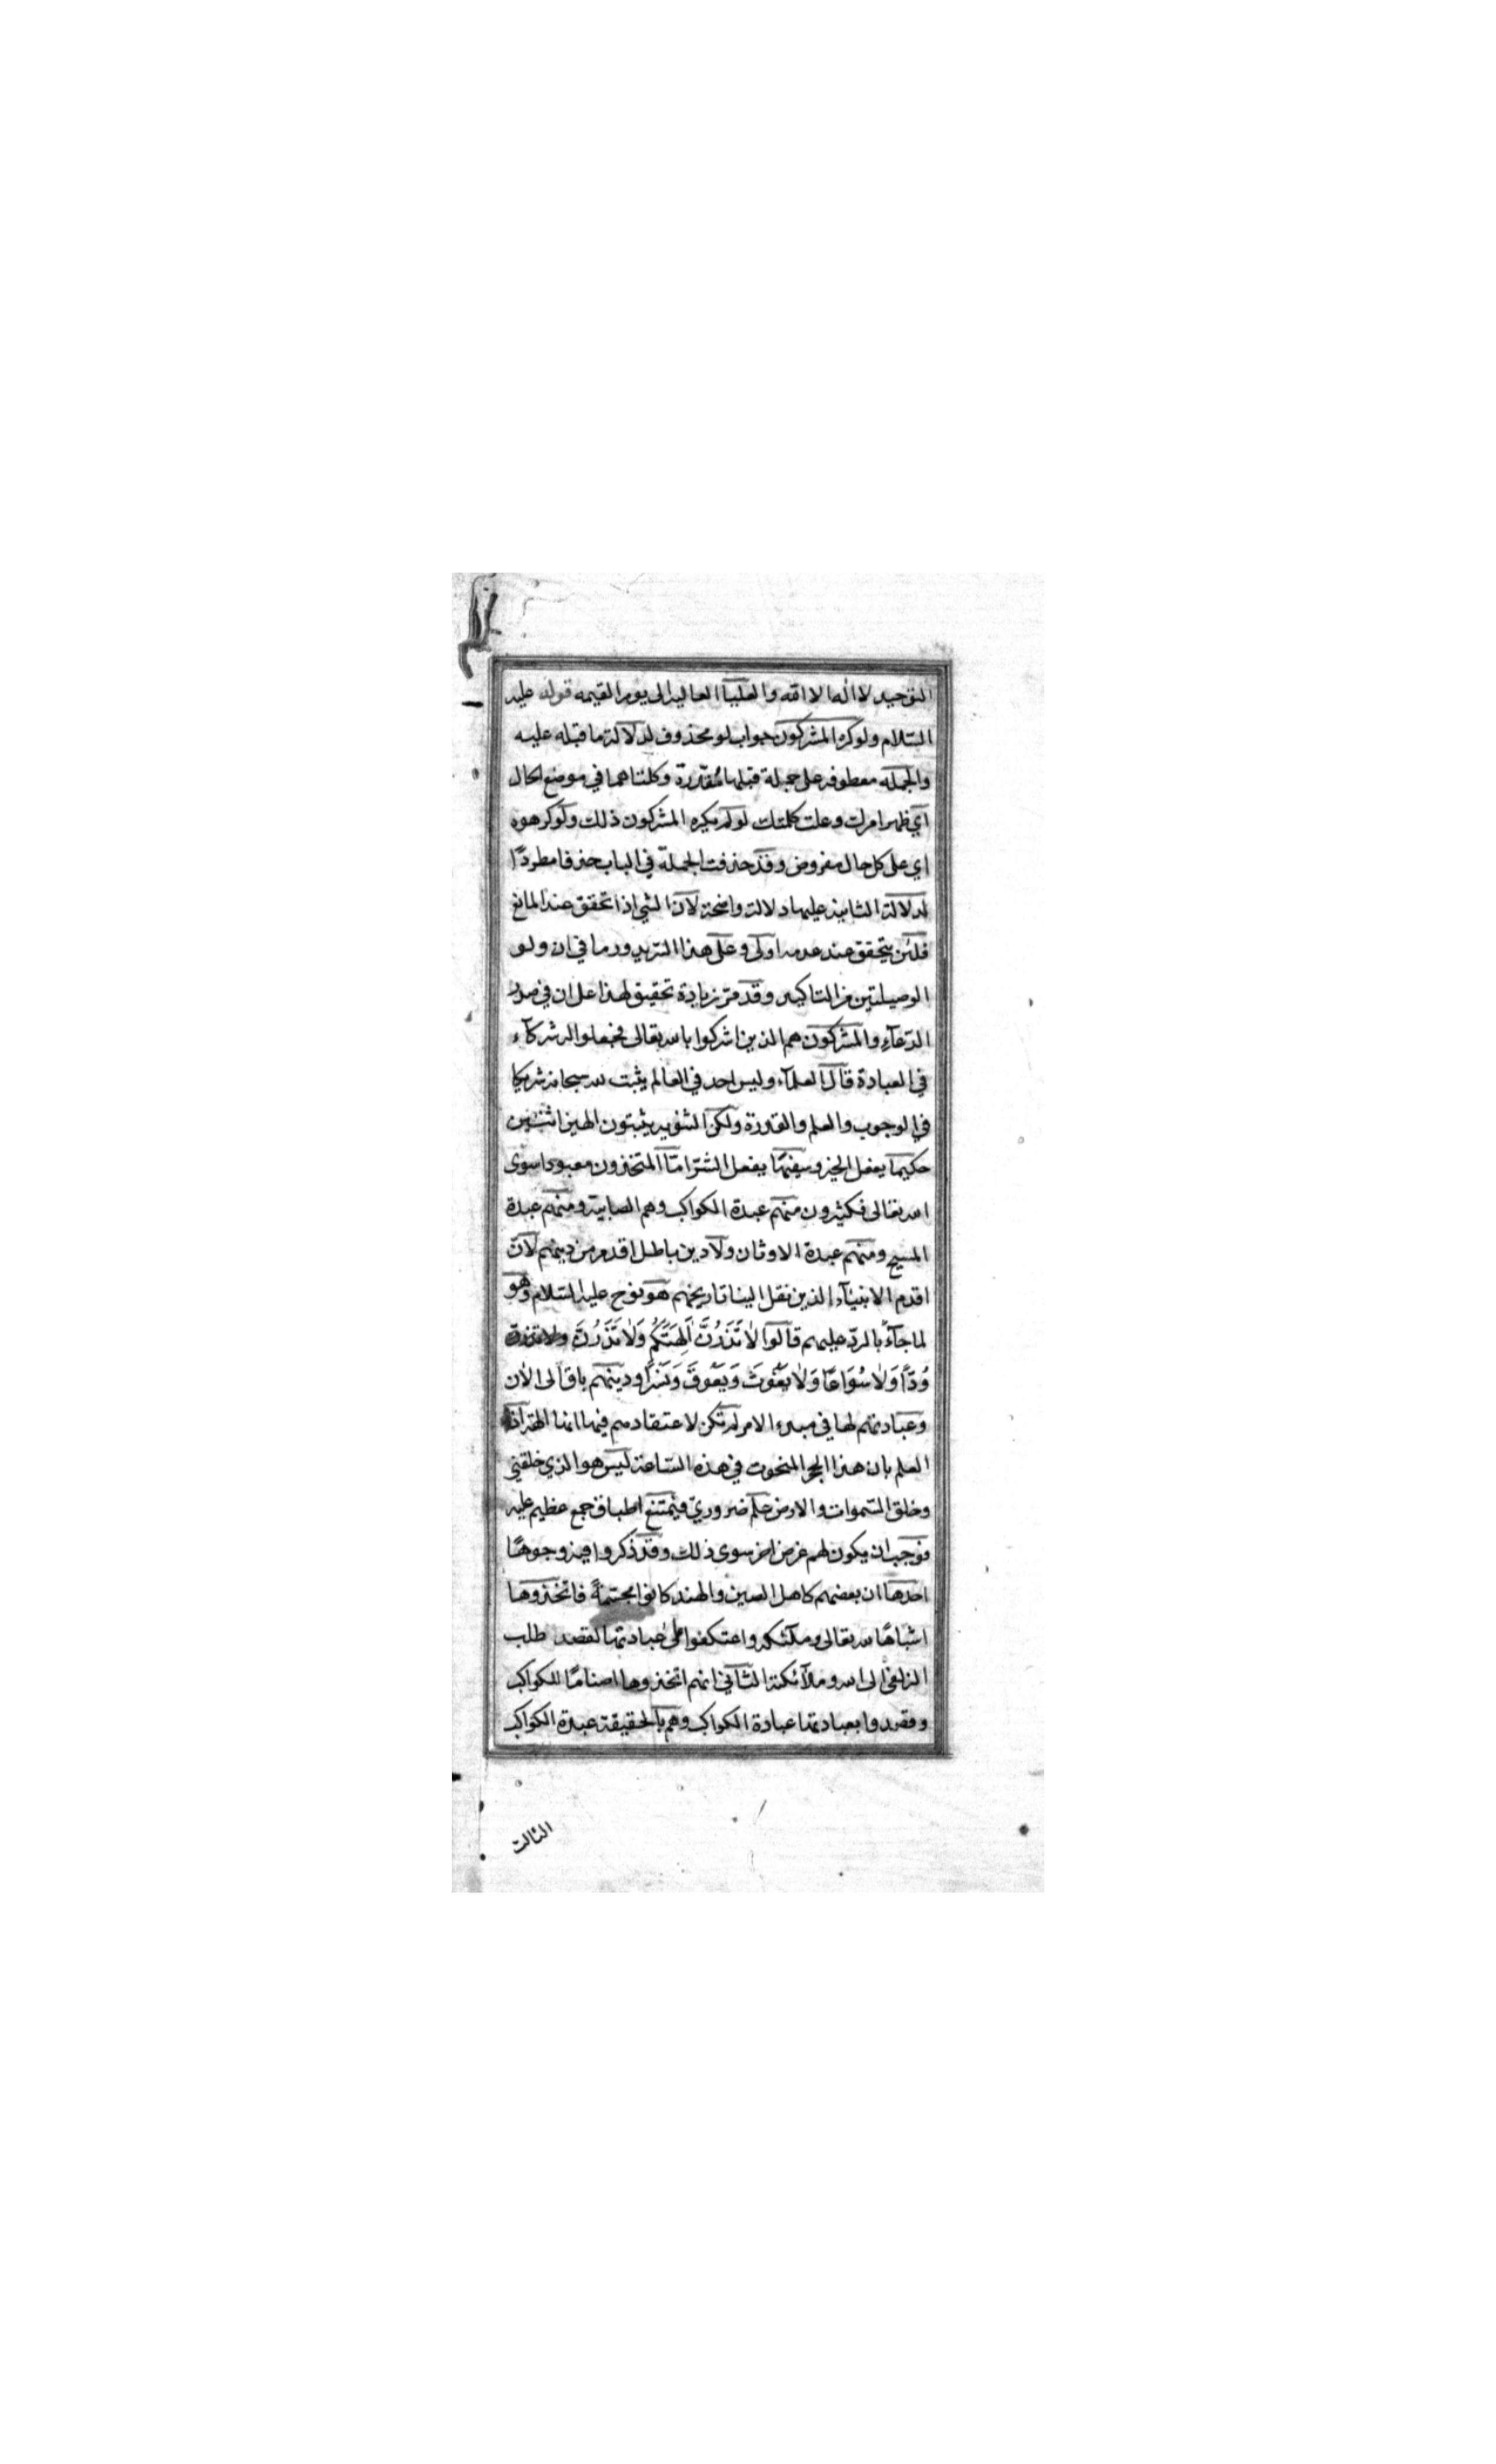 التوحيد لا اله الا الله والعليا العالية الى يوم القيمة قوله عليه
السّلام ولوكره المشركون جواب لو محذوف لدلالة ما قبله عليه
والجمله معطوفة على جملة قبلها مُقدّرة وكلتاهما في موضع الحال
اي ظهر امرك وعلت كلمتك لو لم يكره المشركون ذلك ولوكرهوه
اي على كل حال مفروض وقد حذفت الجملة في الباب حذفا مطردًا
لدلالة الثانية عليها دلالة واضحة لان الشي اذا تحقق عند المانع
فلئن يتحقق عند عدمه اولى وعلى هذا السّر يدور ما في ان ولو
الوصيلتين من التاكيد وقد مرّ زيادة تحقيق لهذا على ان في صدر
الدّعآء والمشركون هم الذين اشركوا بالله تعالى فجعلوا له شركآء
في العبادة قال العلمآء وليس احد في العالم يثبت لله سبحانه شريكا
في الوجوب والعلم والقدرة ولكن الثنوية يثبتون الهين اثنين
حكيما يفعل الخير وسفيهًا يفعل الشرّ امّا المتخذون معبودا سوى
الله تعالى فكثيرون منهم عبدة الكواكب وهم الصابية ومنهم عبدة
المسيح ومنهم عبدة الاوثان ولا دين باطل اقدم من دينهم لانّ
اقدم الانبيآء الذين نقل الينا تاريخهم هو نوح عليه السّلام وهو
لما جآء بالردّ عليهم قالوا لَا تَذَرُنَّ اَلِهَتَكُمْ وَلَا تَذَرُنَّ
وُدًّا وَلَا سُوَاعًا وَلَا يَغُوثَ وَيَعُوقَ وَنَسْرًا ودينهم باق الى الان
وعبادتهم لها في مبدء الامر لم تكن لاعتقادهم فيها انها الهة اذ
العلم بان هذا الحجر المنحوت في هذه السّاعة ليس هو الذي خلقني
وخلق السّموات والارض علم ضروريّ فيمتنع اطباق جمع عظيم عليه
فوجب ان يكون لهم غرض اخر سوى ذلك وقد ذكروا فيه وجوهًا
احدها ان بعضهم كاهل الصين والهند كانوا مجسّمةً فاتخذوها
اشباهًا لله تعالى وملئكته واعتكفوا على عبادتها لقصد طلب
الزلفى الى الله وملآئكته الثاني انهم اتخذوها اصنامًا للكواكب
وقصدوا بعبادتها عبادة الكواكب وهم بالحقيقة عبدة الكواكب
الثالث